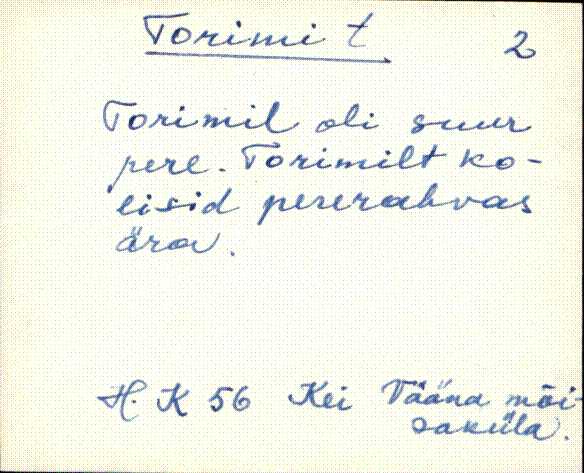 Torimi t 2
Torimil oli suur
pere. Torimilt ko-
lisid pererahvas
ära.
H. K 56 Kei Vääna mõi-
saküla.